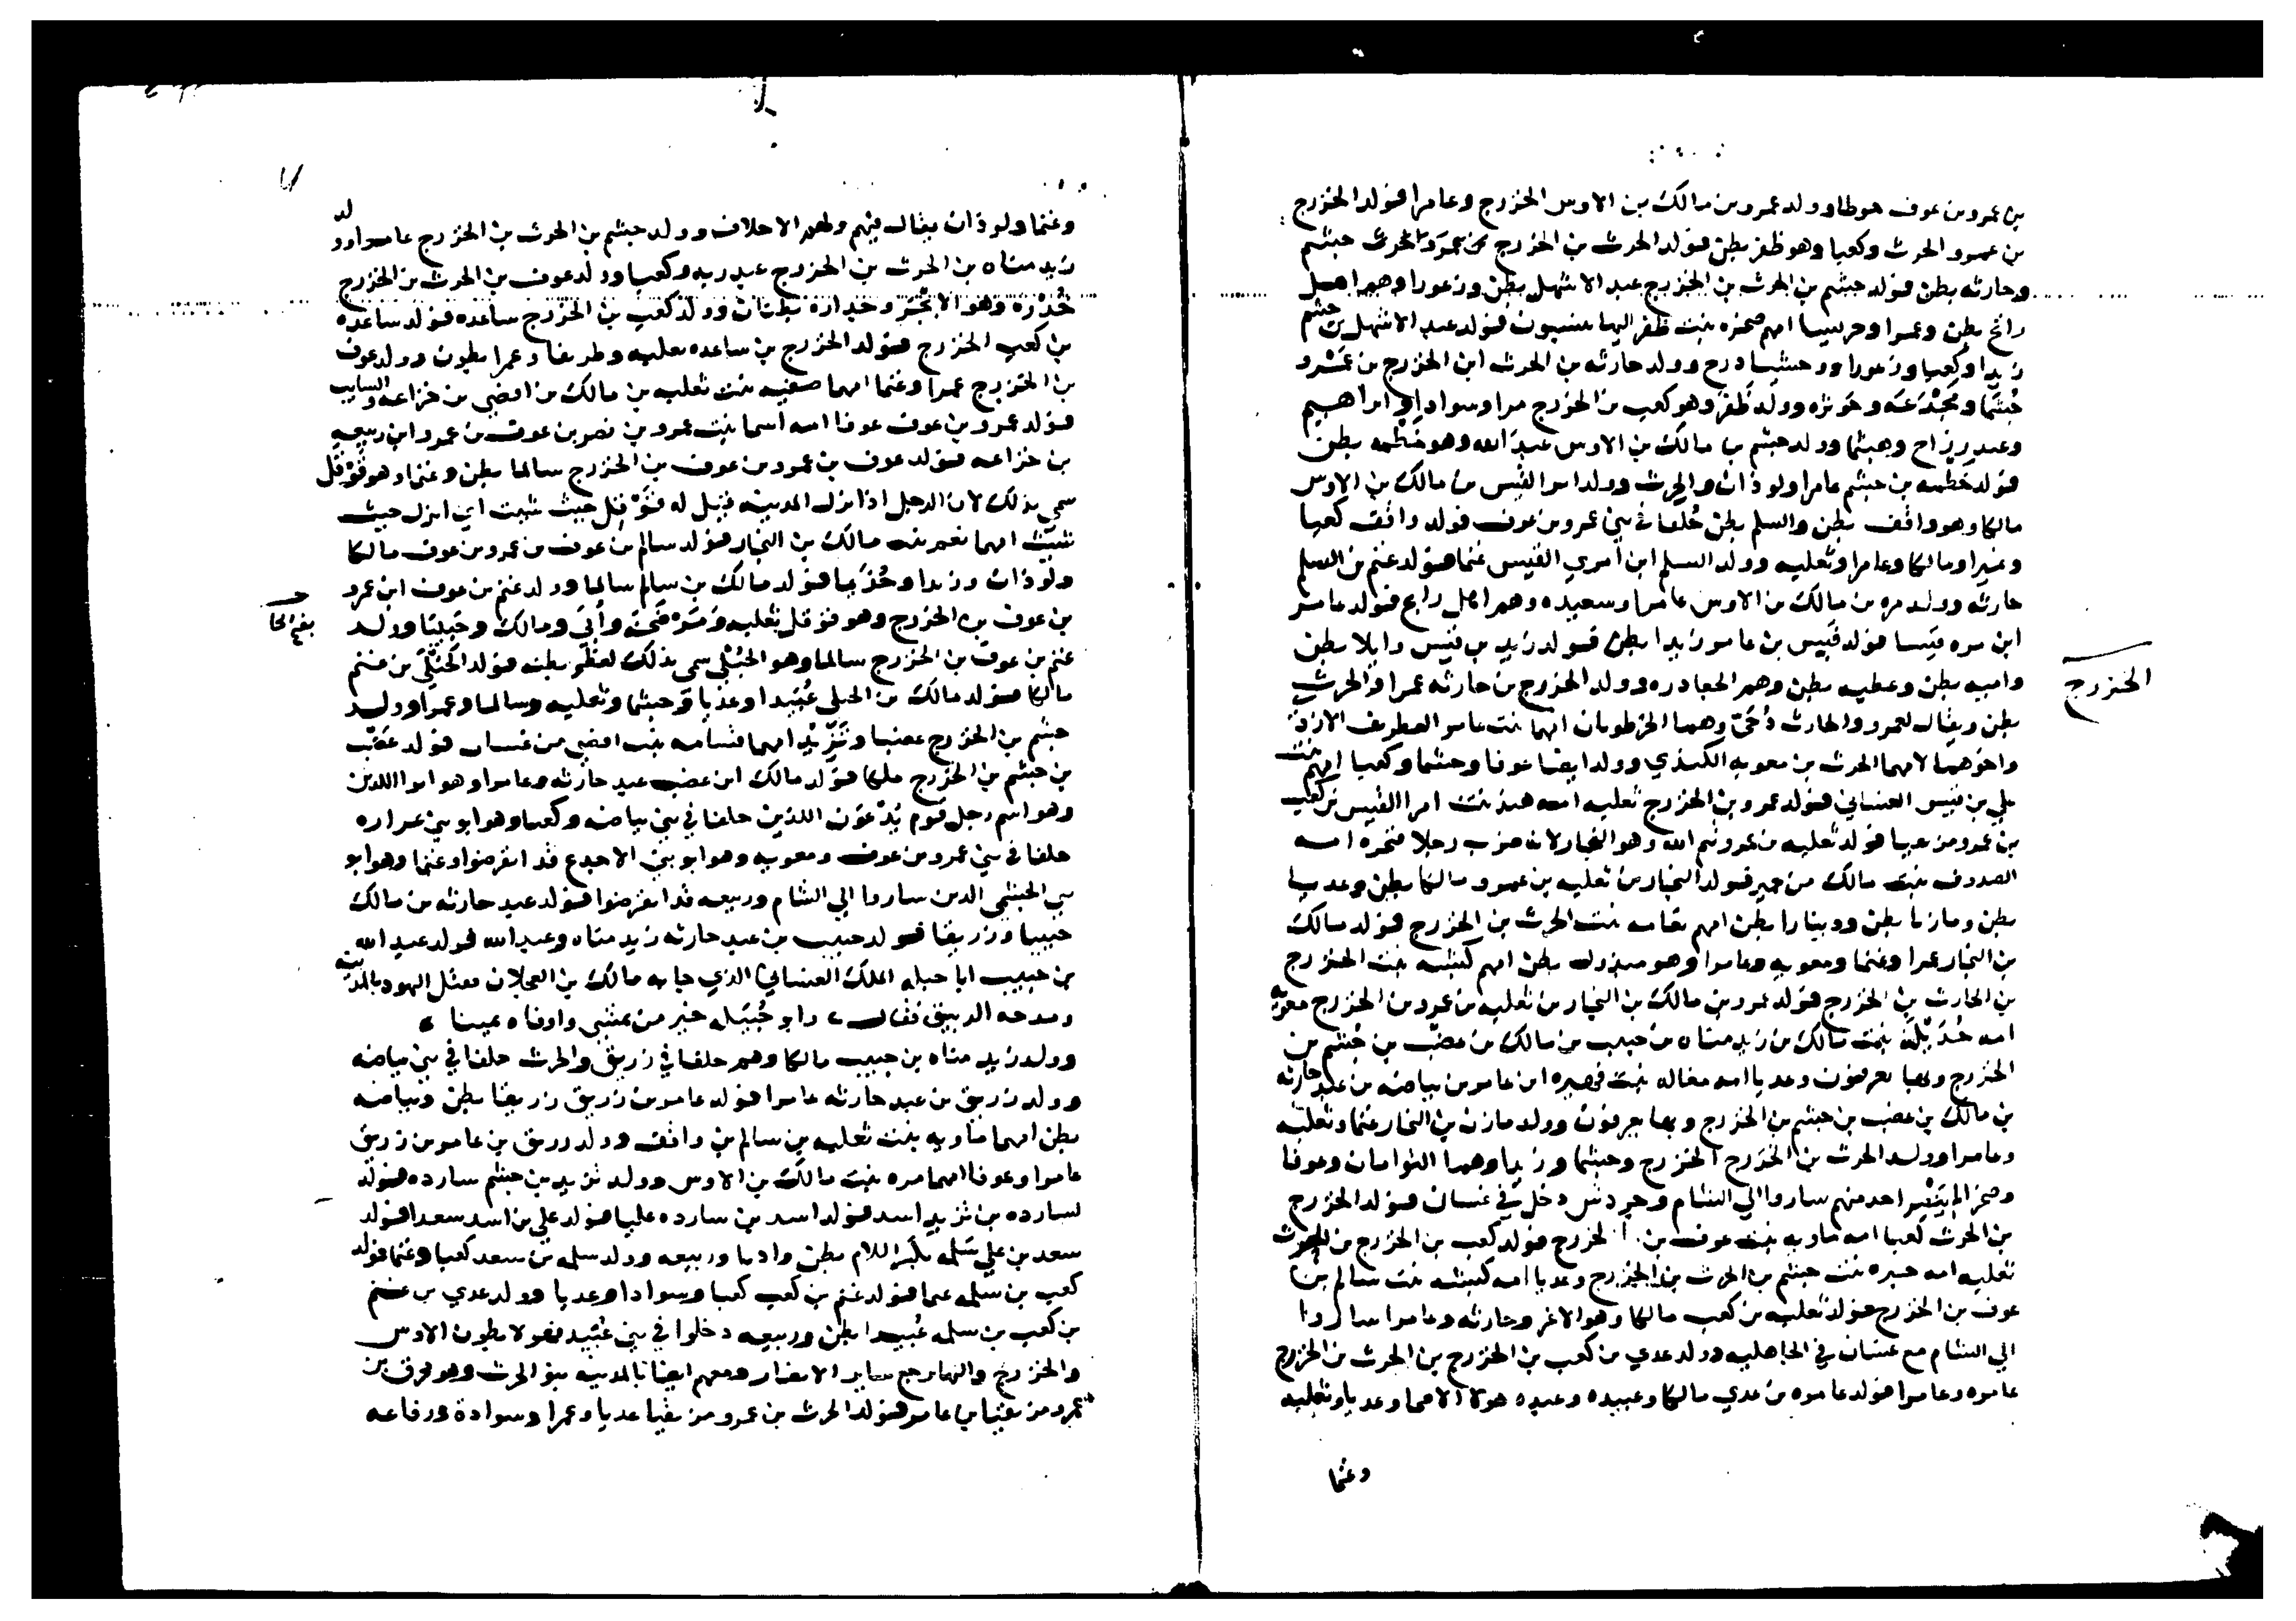 بن عمرو بن عوف هوطا وولد عمرو بن مالك بن الاوس الخزرج وعامرا فولد الخزرج
بن عمرو الحرث وكعبا وهو ظفر بطن فولد الحرث بن الخزرج بن عمرو الحرث جشم
وحارثه بطن فولد جشم بن الحرث بن الخزرج عبد الاشهل بطن وزعورا وهم اهل
راتج بطن وعمرا وحريسا امهم صخره بنت ظفر اليها ينسبون فولد عبد الاشهل بن جشم
زيدا وكعبا وزعورا وولد حارثه بن الحرث ابن الخزرج بن عمرو
جشما ومجدعه وولد ظفر وهو كعب بن الخزرج مرا وسوادا
وعبد رزاح وهيثما وولد جشم بن مالك بن الاوس عبد الله وهو خطمه بطن
فولد خطمه بن جشم عامرا ولوذان والحرث وولد امرا القيس بن مالك بن الاوس
مالكا وهو واقف بطن والسلم بطن حلفا في بني عمرو بن عوف فولد واقف كعبا
وعامرا وثعلبه وولد السلم ابن امري القيس غنما فولد غنم بن السلم
حارثه وولد مره بن مالك بن الاوس عامرا وسعيده وهم اهل رابج فولد عامر
ابن مره قيسا فولد قيس بن عامر زيدا بطن فولد زيد بن قيس وايلا بطن
واميه بطن وعطيه بطن وهم الجعادره وولد الخزرج بن حارثه عمرا والحرث
الخزرج
بطن ويقال لعمرو والحارث وهما الخرطومان امهما بنت عامر الغطريف الازدي
واخوهما لامهما الحرث بن معويه الكندي وولد ايضا عوفا وجشما وكعبا امهم بنت
علي بن قيس الغساني فولد عمرو بن الخزرج ثعلبه امه هند بنت امرا القيس بن كعب
بن عمرو بن فولد ثعلبه بن عمرو تيم الله وهو النجار لانه ضرب رجلا فنجره امه
الصدوف بنت مالك بن حمير فولد النجار بن ثعلبه بن عمرو مالكا بطن وعديا
بطن ومازنا بطن ودينارا بطن امهم بنت الحرث بن الخزرج فولد مالك
بن النجار عمرا وغنما ومعويه وعامرا وهو مبذول بطن امهم كبشه بنت الخزرج
بن الحارث بن الخزرج فولد عمرو بن مالك بن النجار بن ثعلبه بن عمرو بن الخزرج معويه
امه حديله بنت مالك بن زيد مناه بن حبيب بن مالك بن غضب بن جشم بن
الخزرج وبها يعرفون وعديا امه مغاله بنت فهيره ابن عامر بن بياضه بن عبد حارثه
بن مالك بن غضب بن جشم بن الخزرج وبها يعرفون وولد مازن بن النجار غنما وثعلبه
وعامرا وولد الحرث بن الخزرج الخزرج وجشما وزيدا وهما التوامان وعوفا
وصخرا لم يبق احد منهم ساروا الي الشام وجردش دخل في غسان فولد الخزرج
بن الحرث كعبا امه ماويه بنت عوف بن الخزرج فولد كعب بن الخزرج بن الحرث
ثعلبه امه بنت جشم بن الحرث بن الخزرج وعديا امه كبشه بنت سالم بن
عوف بن الخزرج فولد ثعلبه بن كعب مالكا وهو الاغر وحارثه وعامرا ساروا
الي الشام مع غسان في الجاهليه وولد عدي بن كعب بن الخزرج بن الحرث بن الخزرج
عامره وعامرا فولد عامره بن عدي مالكا وعبيده وعبده وعديا وثعلبه
وغنما
وغنما ولوذان يقال فيهم ولهم الاحلاف وولد جشم بن الحرث بن الخزرج عامرا وولد
زيد مناه بن الحرث بن الخزرج عبد ربه وكعبا وولد عوف بن الحرث بن الخزرج
خدره وهو الابجر وخداره بطنان وولد كعب بن الخزرج ساعده فولد ساعده
بن كعب الخزرج فولد الخزرج بن ساعده ثعلبه وطريفا وعمرا بطون وولد عوف
بن الخزرج عمرا وغنما امهما صفيه بنت ثعلبه بن مالك بن افصي بن خزاعه والسايب
فولد عمرو بن عوف عوفا امه اسما بنت عمرو بن نصر بن عوف بن عمرو ابن ربيعه
بن خزاعه فولد عوف بن عمرو بن عوف بن الخزرج سالما بطن وغنما وهو قوقل
سمي بذلك لان الرجل اذا نزل المدينه قيل له قوقل حيث شيت اي انزل حيث
شيت امهما نعم بنت مالك بن النجار فولد سالم بن عوف بن عمرو بن عوف مالكا
ولوذان وزيدا فولد مالك بن سالم سالما وولد غنم بن عوف ابن عمرو
بن عوف بن الخزرج وهو قوقل ثعلبه ومالك وولد
بفتح الحا
غنم بن عوف بن الخزرج سالما وهو الحبلي سمي بذلك لعظم بطنه فولد الحبلي بن غنم
مالكا فولد مالك بن الحبلي عبيدا وعديا وجشما وثعلبه وسالما وعمرا وولد
جشم بن الخزرج غضبا وتزيد امهما قسامه بنت افصي من غسان فولد غضب
بن جشم بن الخزرج مالكا فولد مالك ابن غضب عبد حارثه وعامرا وهو ابو اللذين
وهو اسم رجل قوم يدعون اللذين حلفا في بني بياضه وكعبا وهو ابو بني عراره
حلفا في بني عمرو بن عوف ومعويه وهو ابو بني الاجدع قد انقرضوا وغنما وهو ابو
بني الحبشي الذين ساروا الي الشام وربيعه قد انقرضوا فولد عبد حارثه بن مالك
حبيبا وزريقا فولد حبيب بن عبد حارثه زيد مناه وعبد الله فولد عبد الله
بن حبيب ابا جبله الملك الغساني الذي جا به مالك بن العجلان فقتل اليهود بالمدينه
ومدحه الرمق فقال وابو جبيله خير من يمشي واوفاه يمينا
وولد زيد مناه بن حبيب مالكا وهم حلفا في زريق والحرث حلفا في بني بياضه
وولد زريق بن عبد حارثه عامرا فولد عامر بن زريق زريقا بطن وبياضه
بطن امهما ماويه بنت ثعلبه بن سالم بن واقف وولد زريق بن عامر بن زريق
عامرا وعوفا امهما مره بنت مالك بن الاوس وولد تزيد بن جشم سارده فولد
لسارده بن تزيد اسد فولد اسد بن سارده عليا فولد علي بن اسد سعدا فولد
سعد بن علي سلمه بكسر اللام بطن واديا وربيعه وولد سلمه بن سعد كعبا وغنما فولد
كعب بن سلمه غنما فولد غنم بن كعب كعبا وسوادا وعديا وولد عدي بن غنم
بن كعب بن سلمه عبيدا بطن وربيعه دخلوا في بني عبيد فهولا بطون الاوس
والخزرج واليها يرجع ساير الانصار ومعهم ايضا بالمدينه بنو الحرث
عمرو مزيقيا بن عامر فولد الحرث بن عمرو مزيقيا عديا وعمرا وسوادة ورفاعه